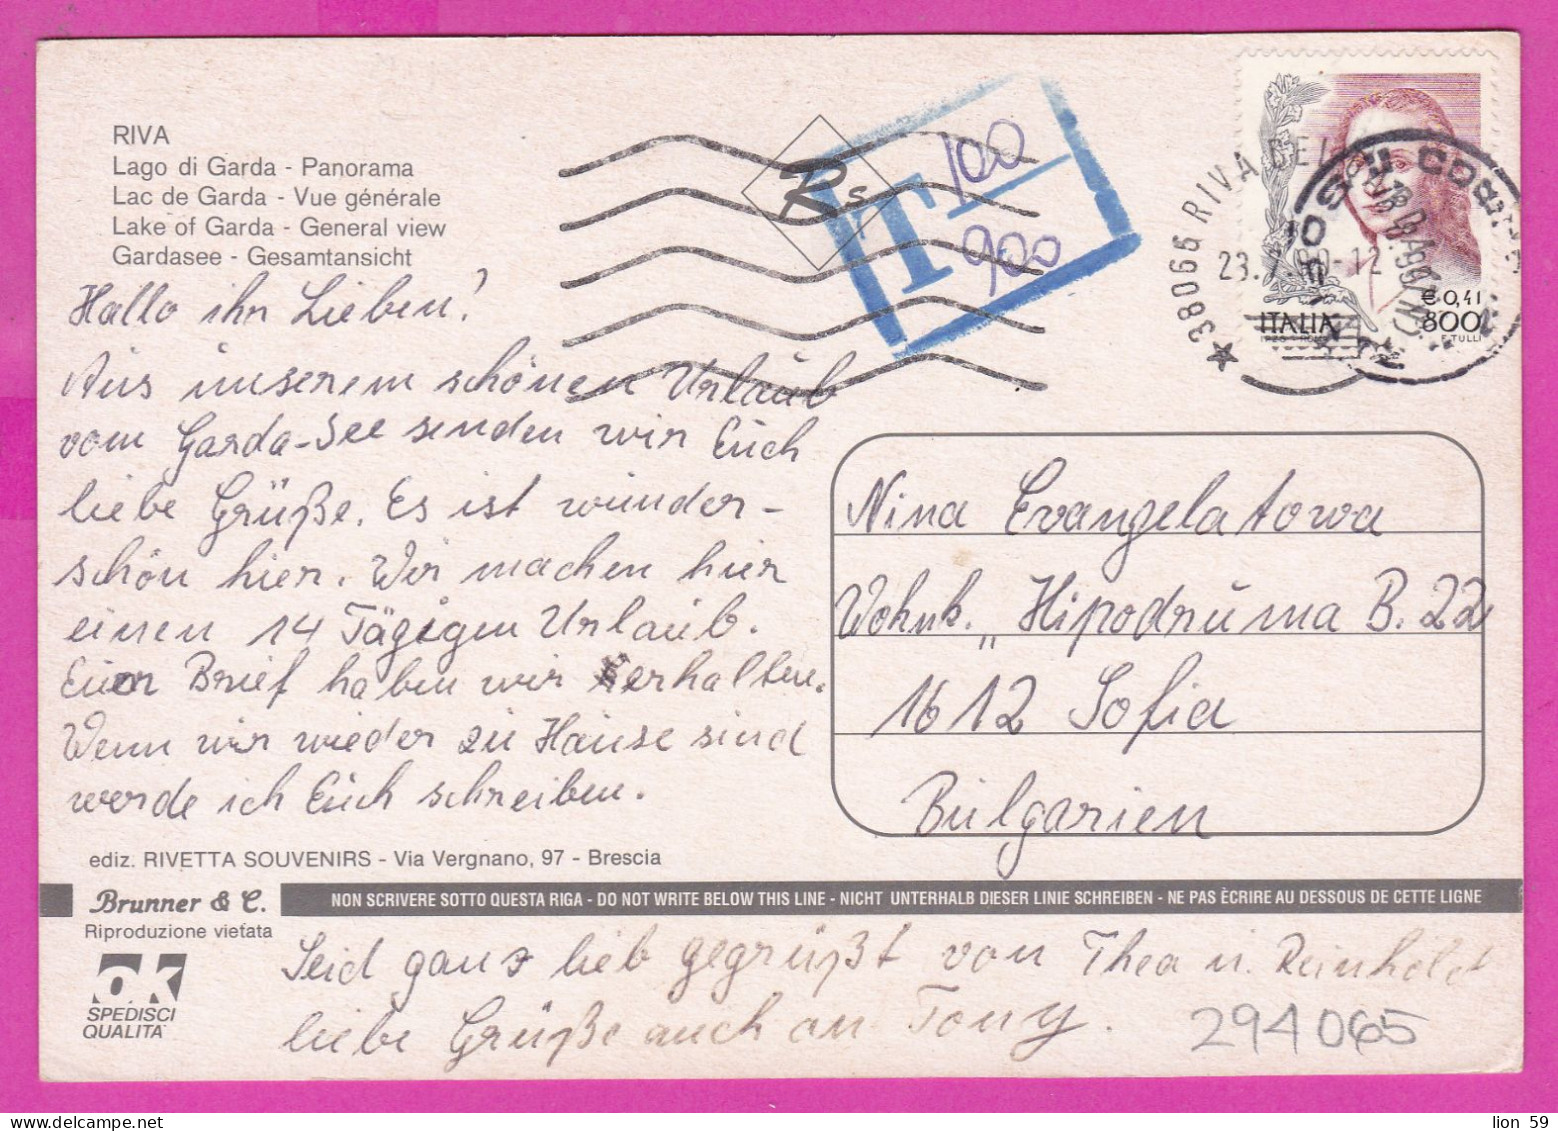 RIVA
Lago di Garda - Panorama
Lac de Garda - Vue générale
Lake of Garda - General view
Gardasee - Gesamtansicht
Rs
T 100
900
38066 RIVA DEL
23.7.99-12
€ 0,41
800
ITALIA
Hallo ihr Lieben!
Aus unserem schönen Urlaub
vom Garda-See senden wir Euch
liebe Grüße. Es ist wunder-
schön hier. Wir machen hier
einen 14 Tägigen Urlaub.
Euer Brief haben wir erhalten.
Wenn wir wieder zu Hause sind
werde ich Euch schreiben.
Nina Evangelatowa
Wohnk. „Hipodruma B. 22
1612 Sofia
Bulgarien
ediz. RIVETTA SOUVENIRS - Via Vergnano, 97 - Brescia
Brunner & C.
Riproduzione vietata
NON SCRIVERE SOTTO QUESTA RIGA - DO NOT WRITE BELOW THIS LINE - NICHT UNTERHALB DIESER LINIE SCHREIBEN - NE PAS ÈCRIRE AU DESSOUS DE CETTE LIGNE
OK
SPEDISCI
QUALITA'
Seid ganz lieb gegrüßt von Thea u. Reinhold
liebe Grüße auch an Tony.
294065
lion 59